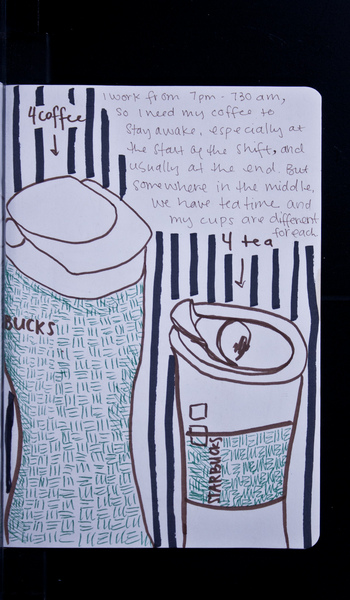 I work from 7pm - 730am,
So I need my coffee to
Stay awake, especially at
the start of the shift, and
usually at the end. But
somewhere in the middle,
we have tea time and
my cups are different
for each.
4 coffee
4 tea
BUCKS
STARBUCKS